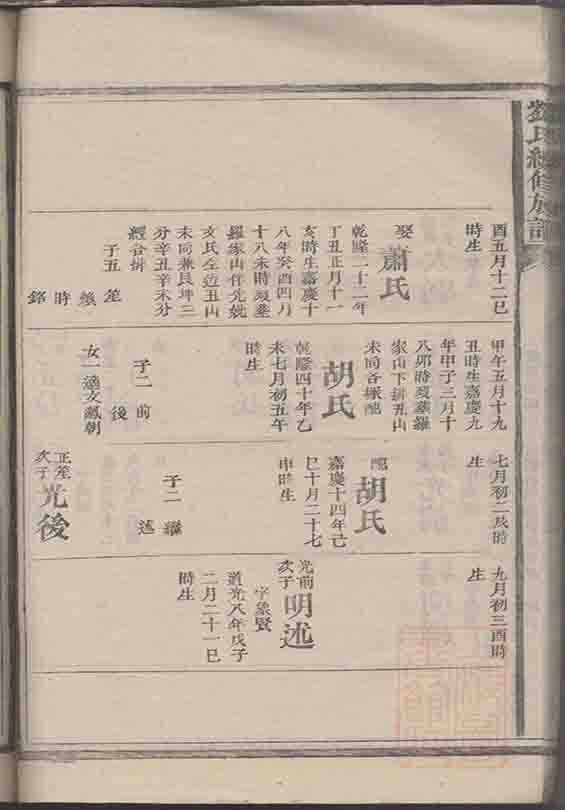 氏續修族譜
酉五月十二巳
時生
娶蕭氏
乾隆二十二年
丁丑正月十一
亥時生嘉慶十
八年癸酉四月
十八未時歿葬
羅家山作先妣
文氏左邊丑山
未向兼艮坤三
分辛丑辛未分
經合拼
子五 笙
時
銘
甲午五月十九
丑時生嘉慶九
年甲子三月十
八卯時歿葬羅
家山下排丑山
未向各振配
胡氏
乾隆四十年乙
未七月初五午
時生
子二 前
後
女一適文鳳朝
七月初二辰時
生
配胡氏
嘉慶十四年己
巳十月二十七
申時生
子二 繼
述
正笙
次子光後
九月初三酉時
生
光前
次子明述
字象賢
道光八年戊子
二月二十一巳
時生